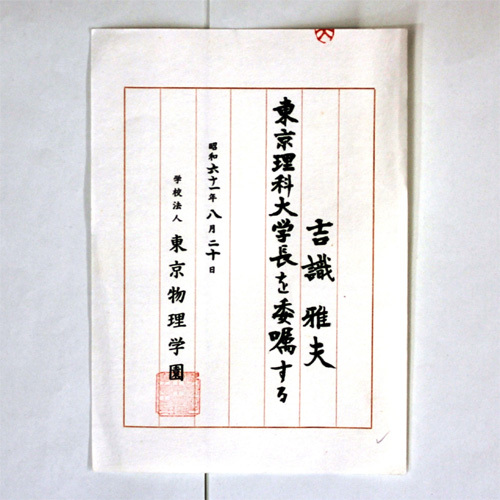 吉識雅夫
東京理科大学長を委嘱する
昭和六十一年八月二十日
学校法人 東京物理学園